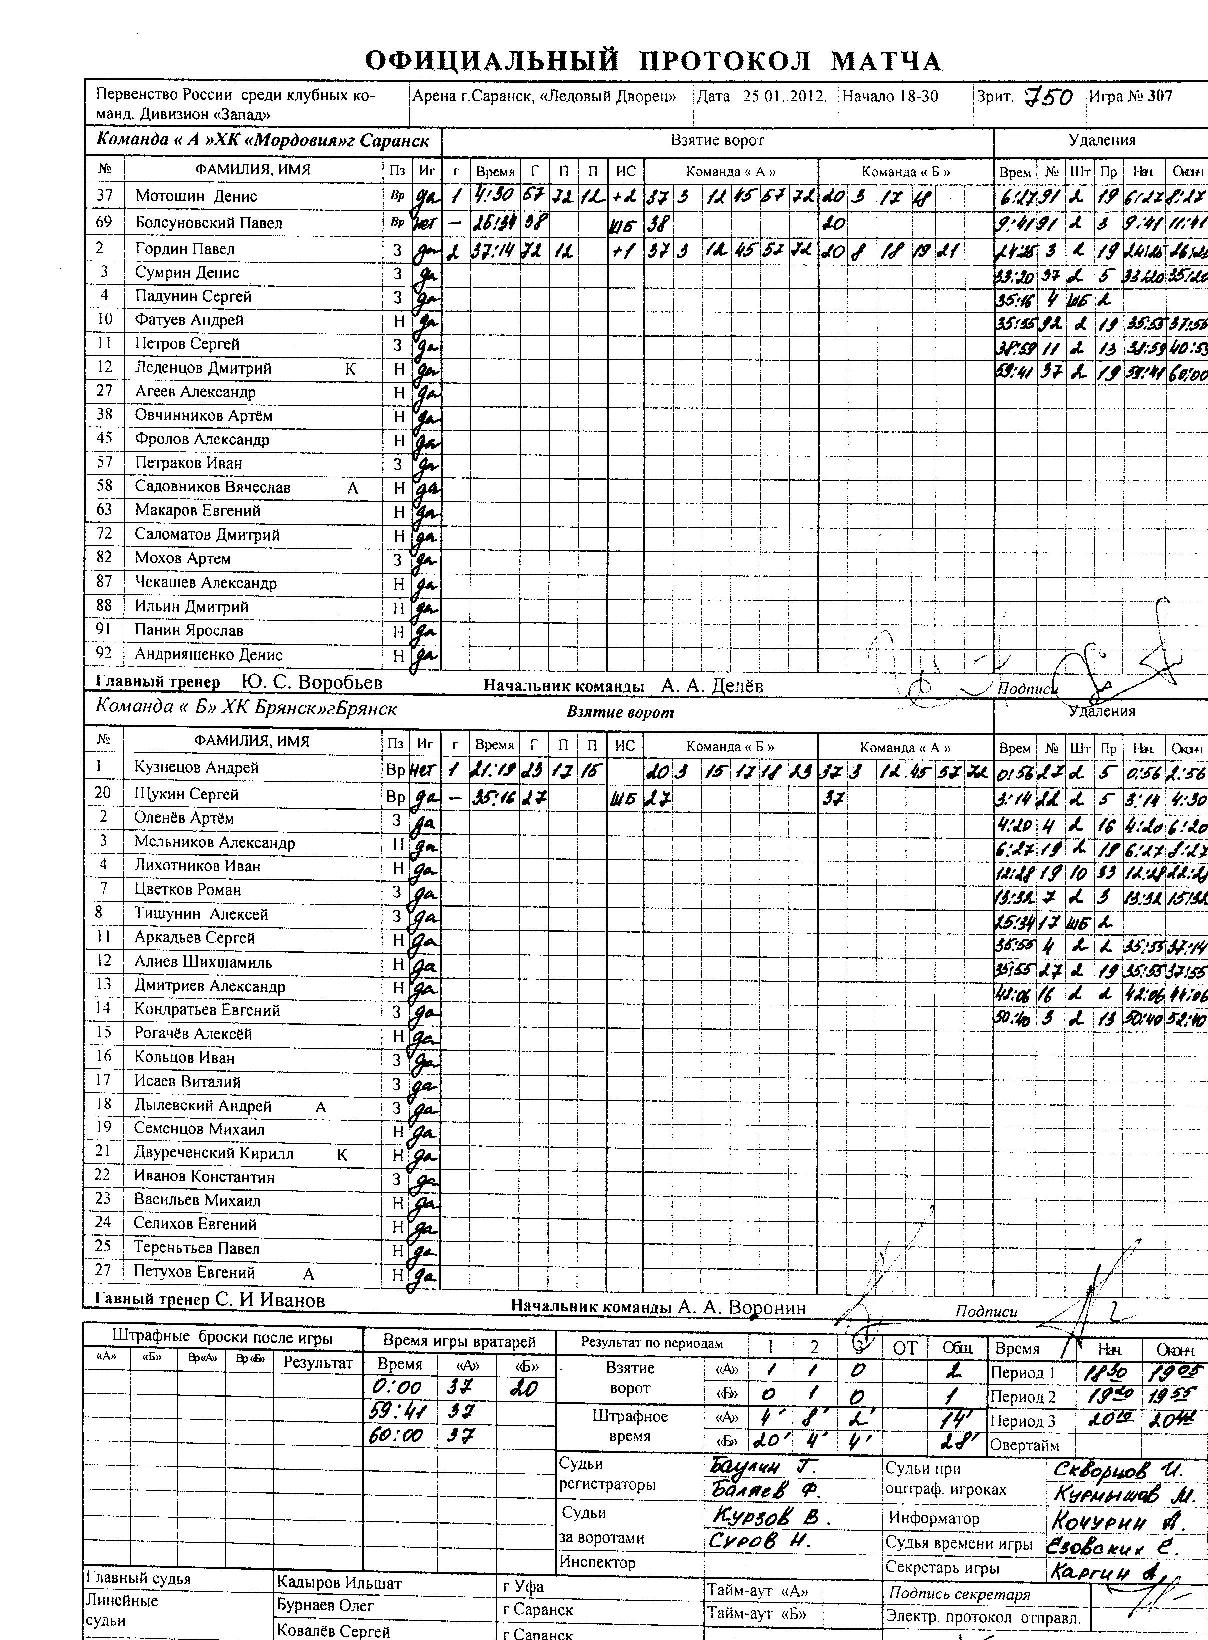 ОФИЦИАЛЬНЫЙ ПРОТОКОЛ МАТЧА
Первенство России среди клубных ко- Арена г.Саранск, «Ледовый Дворец» Дата 25 01. 2012. Начало 18-30 Зрит. 750 Игра № 307
манд. Дивизион «Запад»
Команда « А »ХК «Мордовия»г Саранск Взятие ворот Удаления
№ ФАМИЛИЯ, ИМЯ Пз Иг г Время Г П П ИС Команда « А » Команда « Б » Врем № Шт Пр Нач. Оконч
37 Мотошин Денис Вр да 1 4:30 57 72 12 +2 37 3 12 45 57 72 20 3 17 18 6:27 91 2 19 6:27 8:27
69 Болсуновский Павел Вр нет – 25:34 38 ШБ 38 20 9:41 91 2 3 9:41 11:41
2 Гордин Павел З да 2 37:14 72 12 +1 37 3 12 45 57 72 20 8 18 19 21 3 2 19
3 Сумрин Денис З да 33:20 37 2 5 33:20 35:20
4 Падунин Сергей З да 35:16 4 ШБ 2
10 Фатуев Андрей Н да 35:55 92 2 19 35:55
11 Петров Сергей З да 38:59 11 2 13 38:59
12 Леденцов Дмитрий К Н да 59:41 37 2 19 59:41 60:00
27 Агеев Александр Н да
38 Овчинников Артём Н да
45 Фролов Александр Н да
57 Петраков Иван З да
58 Садовников Вячеслав А Н да
63 Макаров Евгений Н да
72 Саломатов Дмитрий Н да
82 Мохов Артем З да
87 Чекашев Александр Н да
88 Ильин Дмитрий Н да
91 Панин Ярослав Н да
92 Андриященко Денис Н да
Главный тренер Ю. С. Воробьев Начальник команды А. А. Делёв Подписи
Команда « Б» ХК Брянск»гБрянск Взятие ворот Удаления
№ ФАМИЛИЯ, ИМЯ Пз Иг г Время Г П П ИС Команда « Б » Команда « А » Врем № Шт Пр Нач. Оконч
1 Кузнецов Андрей Вр нет 1 21:19 23 17 15 20 3 15 17 18 23 37 3 12 45 57 72 0:56 27 2 5 0:56 2:56
20 Щукин Сергей Вр да – 35:16 27 ШБ 27 37 3:14 22 2 5 3:14 4:30
2 Оленёв Артём З да 4:20 4 2 16 4:20 6:20
3 Мельников Александр Н да 6:27 19 2 19 6:27 8:27
4 Лихотников Иван Н да 12:28 19 10 33 12:28 22:28
7 Цветков Роман З да 13:32 7 2 3 13:32 15:32
8 Тишунин Алексей З да 25:34 17 ШБ 2
11 Аркадьев Сергей Н да 35:55 4 2 2 35:55 37:14
12 Алиев Шихшамиль Н да 35:55 27 2 19 35:55 37:55
13 Дмитриев Александр Н да 42:06 16 2 2 42:06 44:06
14 Кондратьев Евгений З да 50:40 3 2 13 50:40 52:40
15 Рогачёв Алексей Н да
16 Кольцов Иван З да
17 Исаев Виталий З да
18 Дылевский Андрей А З да
19 Семенцов Михаил Н да
21 Двуреченский Кирилл К Н да
22 Иванов Константин З да
23 Васильев Михаил Н да
24 Селихов Евгений Н да
25 Тереньтьев Павел Н да
27 Петухов Евгений А Н да
Главный тренер С. И Иванов Начальник команды А. А. Воронин Подписи
Штрафные броски после игры Время игры вратарей Результат по периодам 1 2 3 ОТ Общ. Время Нач. Оконч.
«А» «Б» Вр«А» Вр«Б» Результат Время «А» «Б» Взятие «А» 1 1 0 2 Период 1 18 30 19 05
0:00 37 20 ворот «Б» 0 1 0 1 Период 2 19 20 19 55
59:41 37 Штрафное «А» 4' 8' 2' 14' Период 3 20 10
60:00 37 время «Б» 20' 4' 4' 28' Овертайм
Судьи Баулин Г. Судьи при Скворцов И.
регистраторы Баляев Ф. оштраф. игроках Курмышов М.
Судьи Курзов В. Информатор Кочурин А.
за воротами Суров Н. Судья времени игры Езовский Е.
Инспектор Секретарь игры Каргин А.
Главный судья Кадыров Ильшат г Уфа Тайм-аут «А» Подпись секретаря
Линейные Бурнаев Олег г Саранск Тайм-аут «Б» Электр. протокол отправл.
судьи Ковалёв Сергей г Саранск